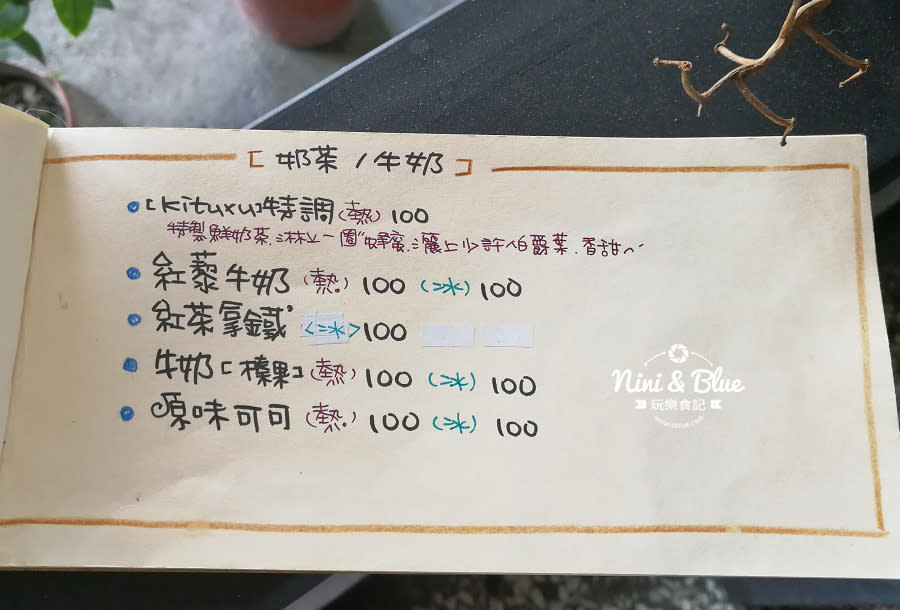 [ 奶茶 / 牛奶 ]
[Kituxu]特調(熱) 100
特製鮮奶茶.淋上一圈"蜂蜜.灑上少許伯爵葉.香甜~
紅藜牛奶 (熱.) 100 (冰) 100
紅茶拿鐵 <冰> 100
牛奶[榛果] (熱) 100 (冰) 100
原味可可 (熱.) 100 (冰) 100
Nini & Blue
玩樂食記